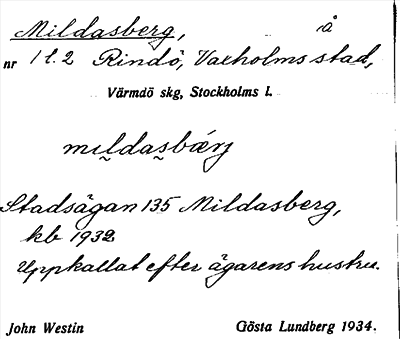 Mildasberg, å
nr 1 l. 2 Rindö, Vaxholms stad,
Värmdö skg, Stockholms l.
mil̰das̰bærj
Stadsägan 135 Mildasberg,
kb 1932
Uppkallat efter ägarens hustru.
John Westin Gösta Lundberg 1934.